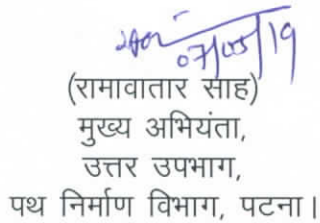 07/05/19
(रामावतार साह)
मुख्य अभियंता,
उत्तर उपभाग,
पथ निर्माण विभाग, पटना।